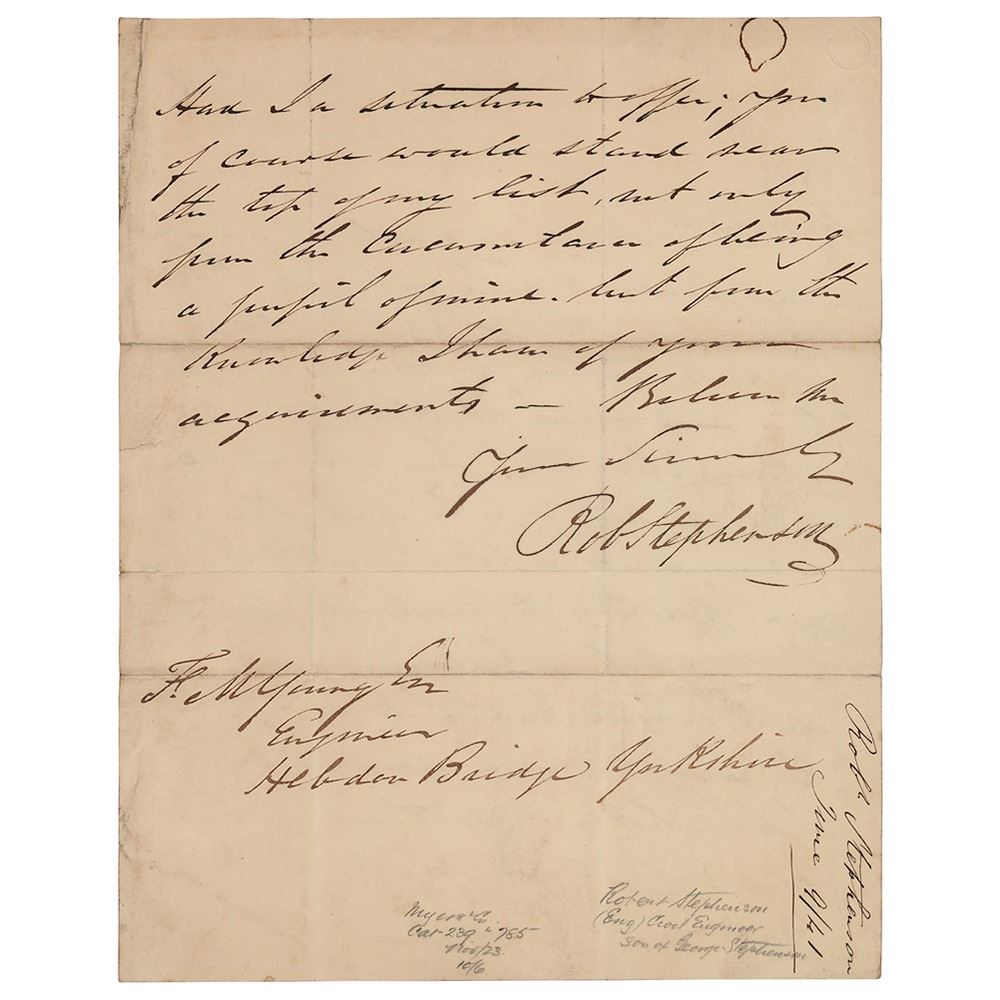 Had I a situation to offer; you
of course would stand near
the top of my list, not only
from the Circumstance of being
a pupil of mine. but from the
Knowledge I have of your
acquirements — Believe me
Your Sincerely
Rob Stephenson
M Young Esq
Engineer
Hebdon Bridge Yorkshire
Robt Stephenson
June 9/41
Myers & Co.
Cat-239 " 785
Nov/23.
10/6.
Robert Stephenson
(Eng) Civil Engineer
Son of George Stephenson